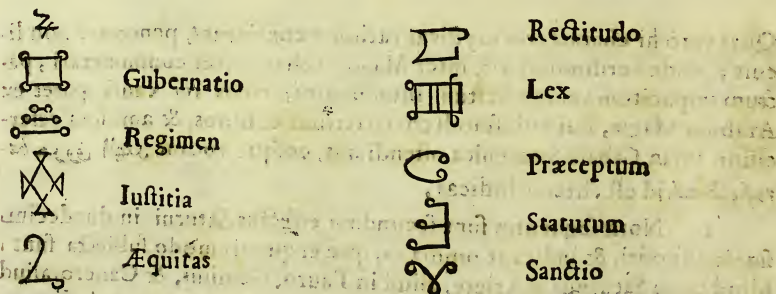 Gubernatio
Regimen
Iuſtitia
Æquitas
Rectitudo
Lex
Præceptum
Statutum
Sanctio